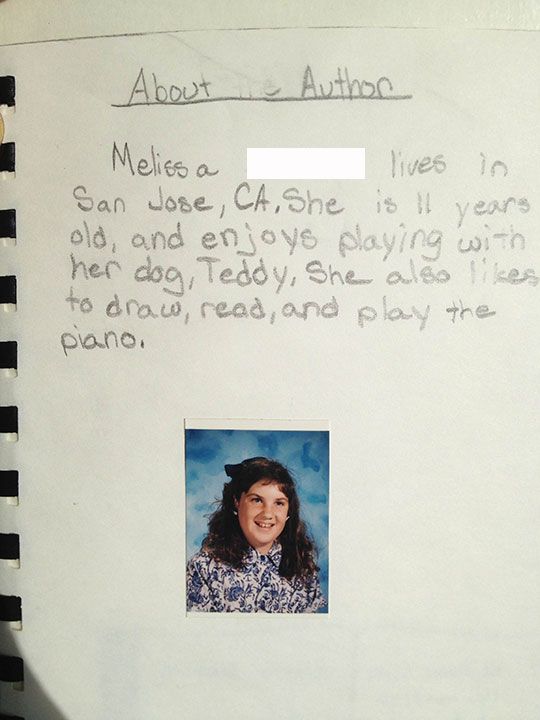 About the Author
Melissa lives in
San Jose, CA. She is 11 years
old, and enjoys playing with
her dog, Teddy. She also likes
to draw, read, and play the
piano.